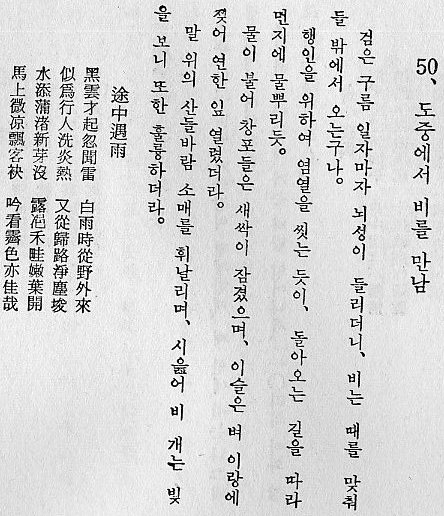 50、 도중에서 비를 만남
검은 구름 일자마자 뇌성이 들리더니、 비는 때를 맞춰
들 밖에서 오는구나。
행인을 위하여 염열을 씻는 듯이、 돌아오는 길을 따라
먼지에 물뿌리듯。
물이 불어 창포들은 새싹이 잠겼으며、 이슬은 벼 이랑에
젖어 연한 잎 열렸더라。
말 위의 산들바람 소매를 휘날리며、 시읊어 비 개는 빛
을 보니 또한 훌륭하더라。
途中遇雨
黑雲才起忽聞雷 白雨時從野外來
似爲行人洗炎熱 又從歸路淨塵埃
水添蒲渚新芽沒 露浥禾畦嫩葉開
馬上微凉飄客袂 吟看霽色亦佳哉